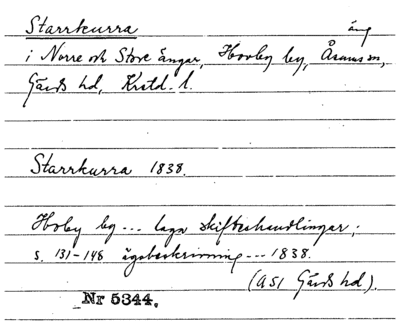 Starrkurra äng
i Norre och Store ängar, Hovby by, Åsums sn,
Gärds hd, Krstd. l.
Starrkurra 1838.
Hoby by --- laga skifteshandlingar;
s. 131-148 ägobeskrivning --- 1838.
(ASI Gärds hd).
Nr 5344.